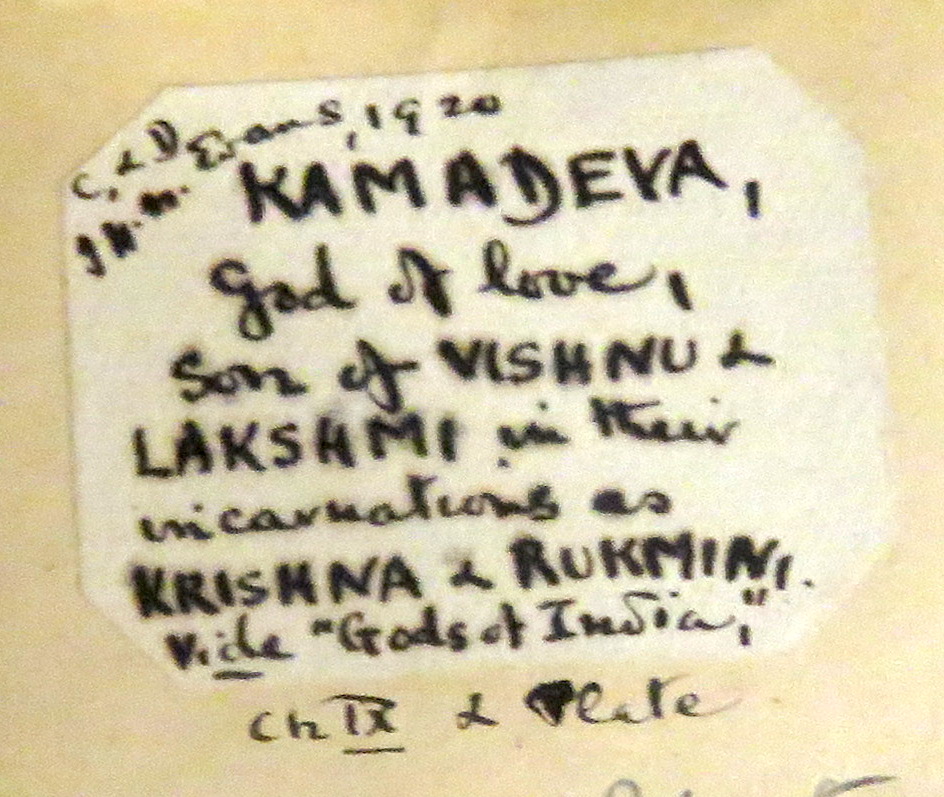 C. & D. Evans, 1920
KAMADEVA,
God of love,
Son of VISHNU &
LAKSHMI in their
incarnations as
KRISHNA & RUKMINI.
Vide "Gods of India,"
Ch IX & Plate